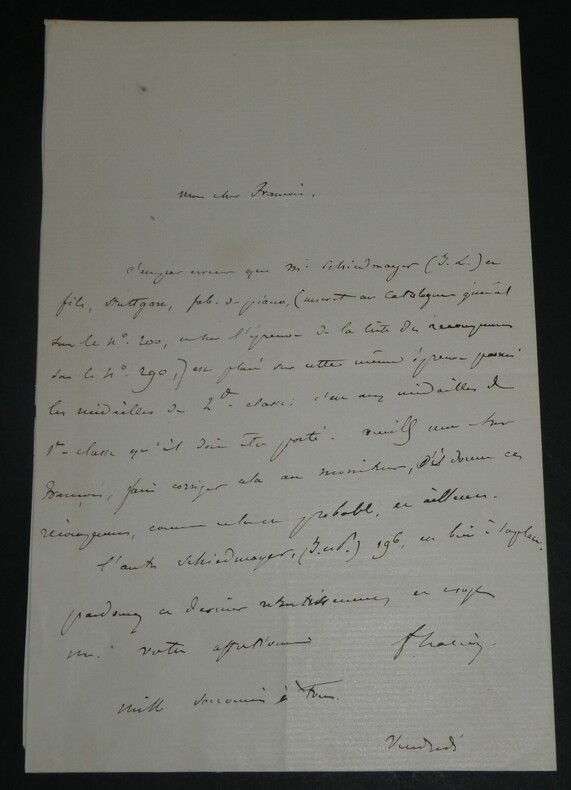 Mon cher François,
que Mr Schiedmayer (J. L.) et
fils, Stuttgart, fab. de piano, (inscrit au Catalogue général
sous le No. 200, et sur l'épreuve de la liste des récompenses
sous le No. 290,) est placé sur cette même épreuve parmi
les médailles de 2de classe; c'est aux médailles de
1re classe qu'il doit être porté. Veuillez mon cher
François, faire corriger cela au moniteur, s'il donne ces
récompenses, comme cela est probable, et ailleurs.
L'autre Schiedmayer, (J. et P.) 196, est bien à sa place.
pardonnez ce dernier et croyez
moi votre affectionné
mille à
Vendredi